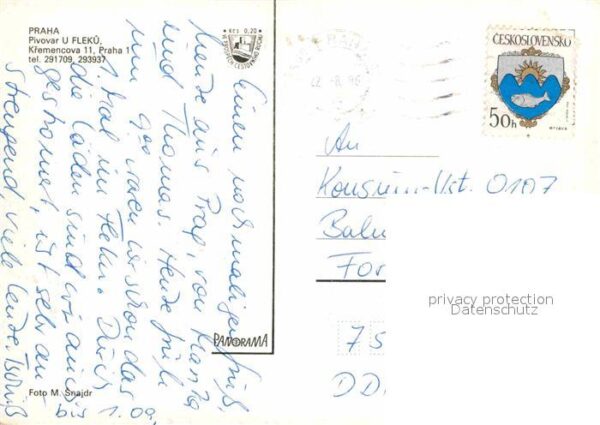 PRAHA
Pivovar U FLEKŮ,
Křemencova 11, Praha 1
tel. 291709, 293937
Kčs 0,20
Einen nochmaligen Gruß
heute aus Prag, von
und Thomas. Heute früh
um 900 waren wir schon das
1. Mal im Fleku. Durch
die Läden sind wir auch
gestromert, ist sehr an-
strengend, viele Leute. Tschüß
bis 1.09.
Foto M. Šnajdr
PANORAMA
PRAHA
ČESKOSLOVENSKO
50h
An
Konsum-Vst. 0107
Bahn
For
75
DD
privacy protection
Datenschutz